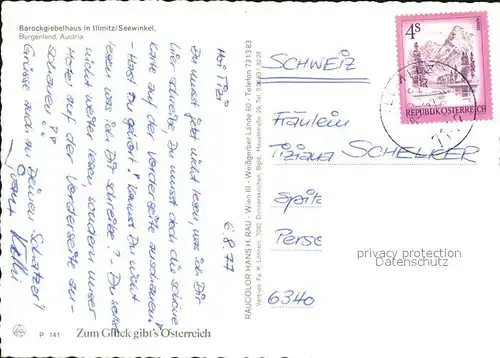 Barockgiebelhaus in Illmitz/Seewinkel,
Burgenland, Austria
6.8.77
Hoi Tizi
Du musst jetzt nicht lesen, was ich Dir
hier schreibe, Du musst doch die schöne
Karte auf der Vorderseite anschauen!
- Hast Du gehört? Kannst Du nicht
lesen was ich Dir schreibe? - Du sollst
nicht weiter lesen, sondern unser
Hotel auf der Vorderseite an-
schauen!!
Grüsse auch an Deinen Schatzeri
P 141
Zum Glück gibt's Österreich
RAUCOLOR HANS H. RAU - Wien III - Weißgerber Lände 60 - Telefon 731383
Vertrieb: Fa. K. Löhnert, 7092, Donnerskirchen, Bgld., Hauptstraße 29, Tel. 02683/8228
4S
REPUBLIK ÖSTERREICH
SCHWEIZ
Fräulein
Tiziana SCHELKER
Spita
Perso
6340
privacy protection
Datenschutz